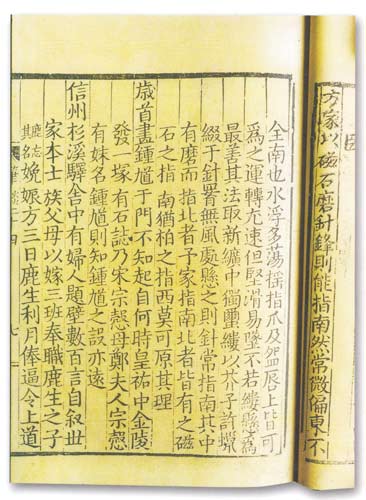 方家以磁石磨針鋒則能指南然常微偏東不
全南也水浮多蕩搖指爪及盌脣上皆可
爲之運轉尤速但堅滑易墜不若縷懸爲
最善其法取新纊中獨蠒縷以芥子許蠟
綴于針腰無風處懸之則針常指南其中
有磨而指北者予家指南北者皆有之磁
石之指南猶柏之指西莫可原其理
歲首畫鍾馗于門不知起自何時皇祐中金陵
發一塚有石誌乃宋宗愨母鄭夫人宗愨
有妹名鍾馗則知鍾馗之設亦遠
信州杉溪驛舍中有婦人題壁數百言自叙世
家本士族父母以嫁三班奉職鹿生之子
鹿忘其名娩娘方三日鹿生利月俸逼令上道